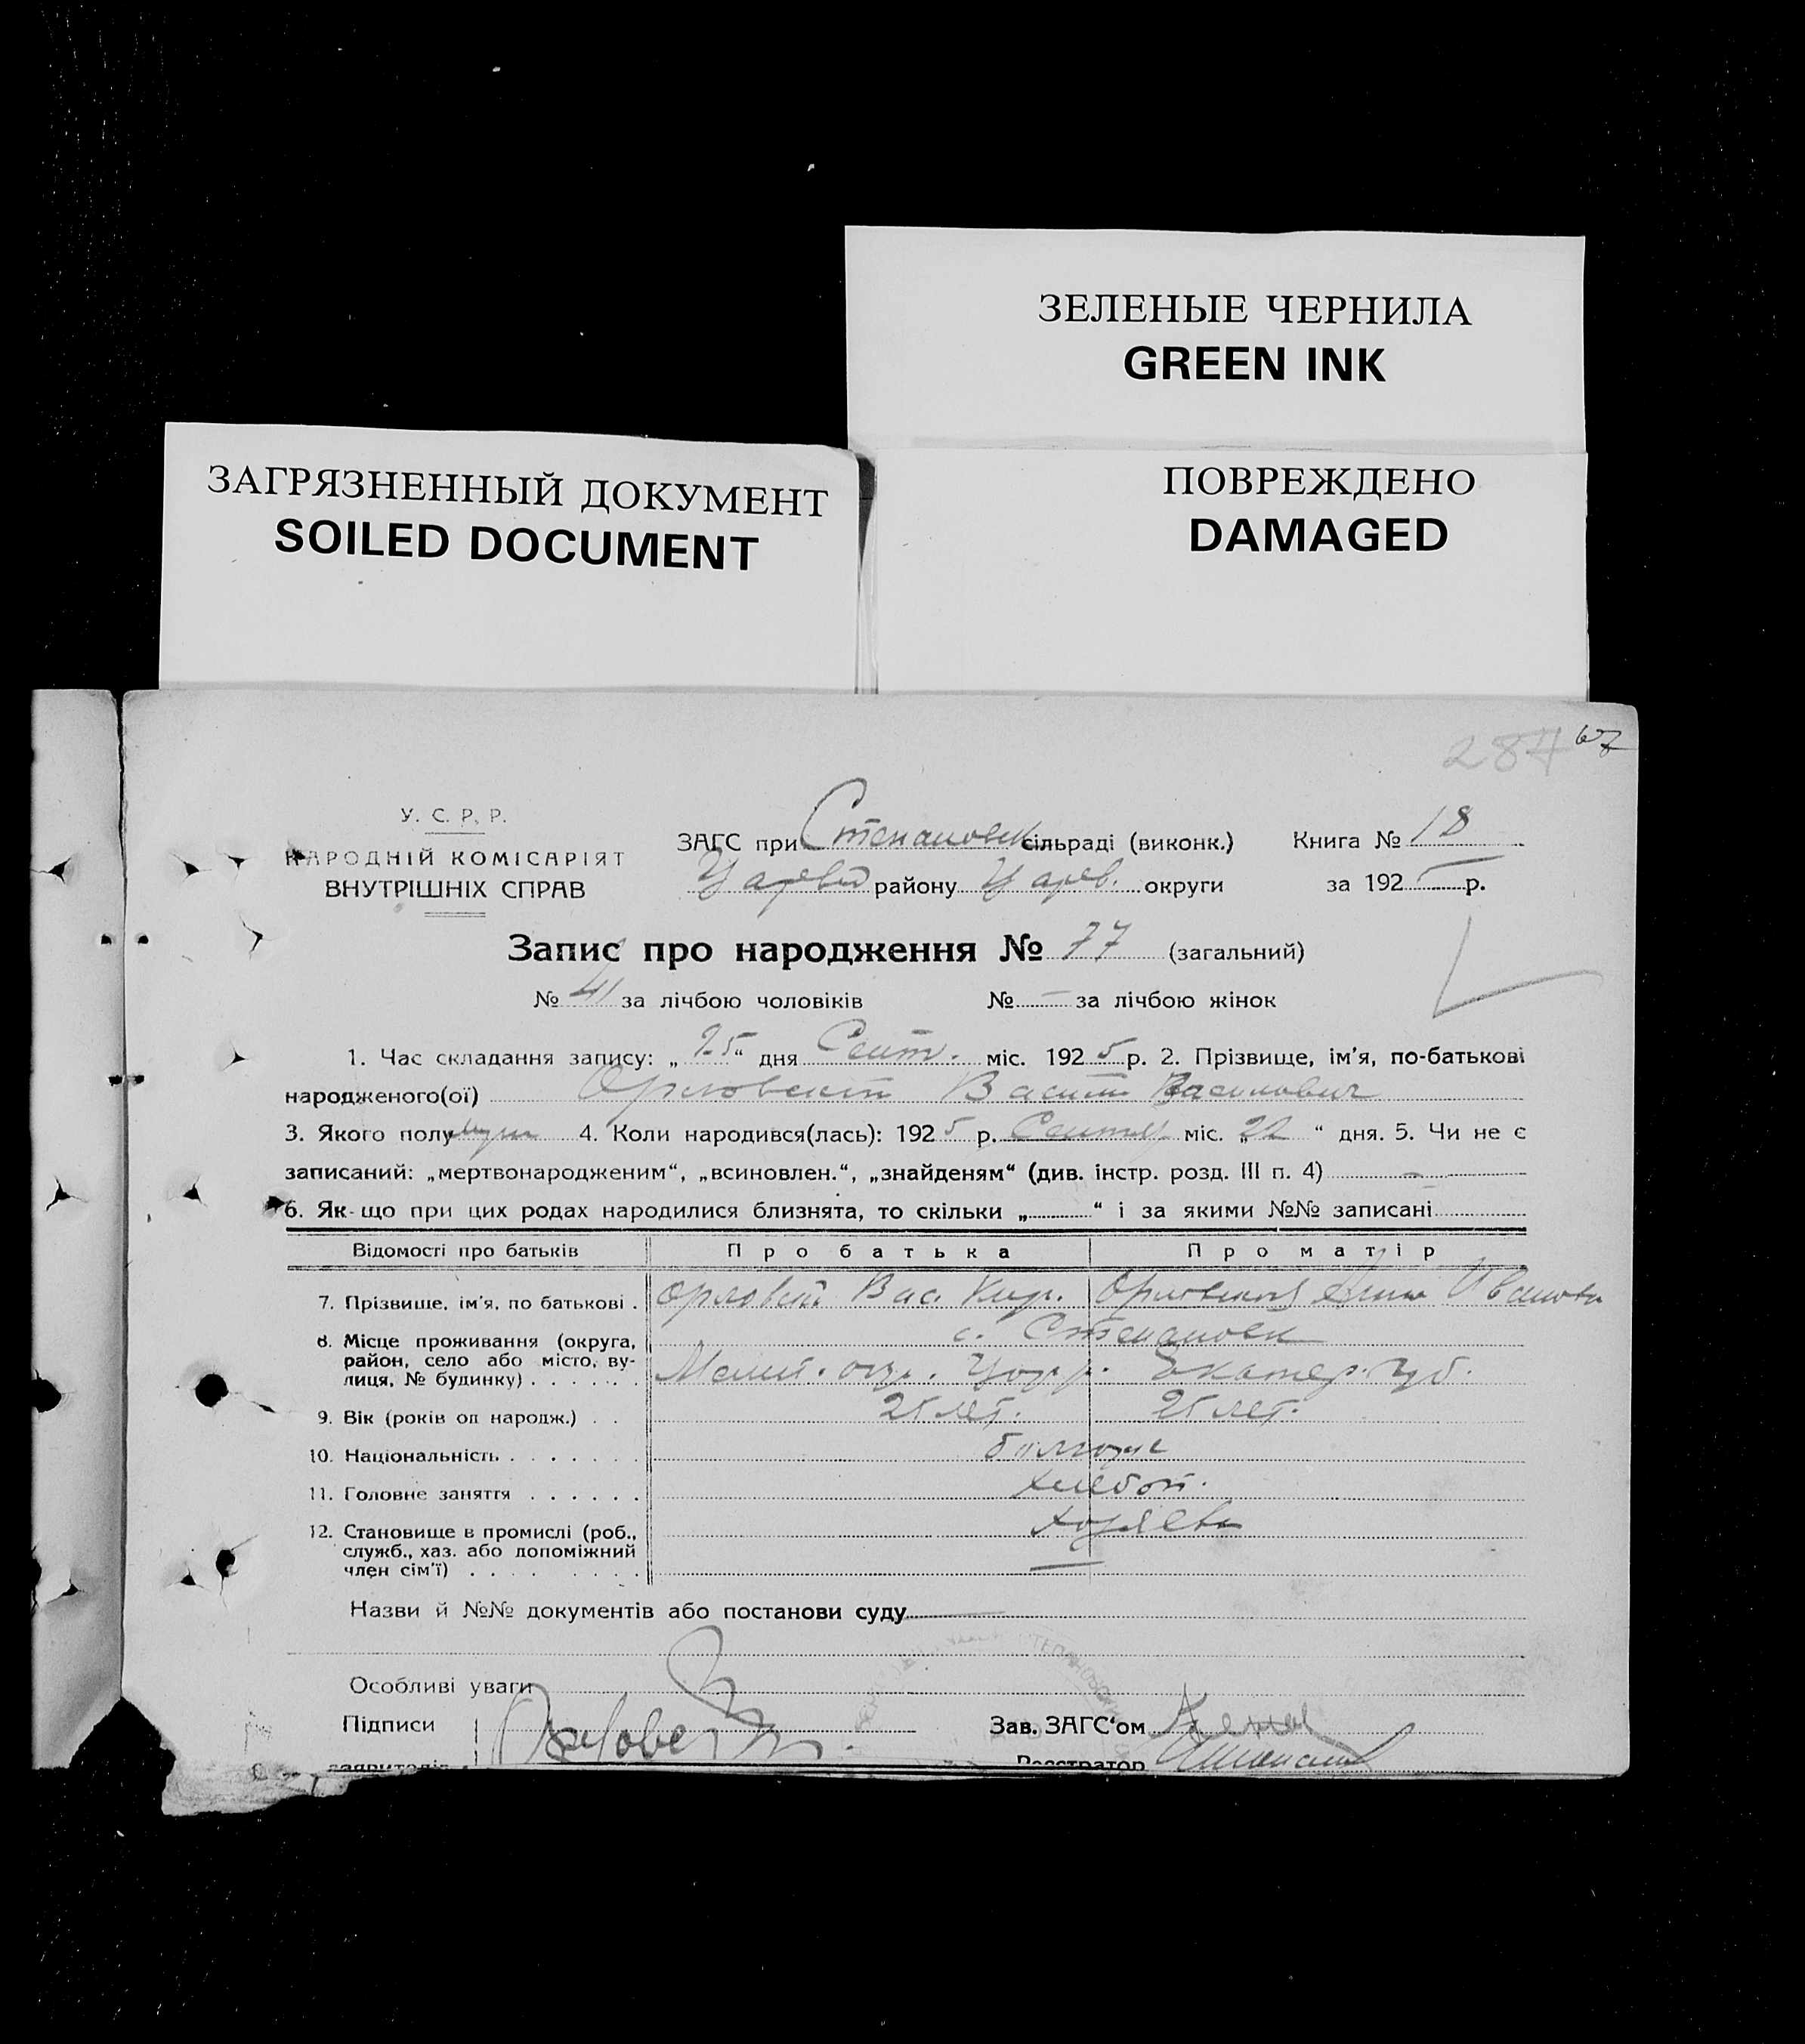 ЗЕЛЕНЫЕ ЧЕРНИЛА
GREEN INK
ЗАГРЯЗНЕННЫЙ ДОКУМЕНТ
SOILED DOCUMENT
ПОВРЕЖДЕНО
DAMAGED
287
У. С. Р. Р.
НАРОДНІЙ КОМІСАРІЯТ
ВНУТРІШНІХ СПРАВ
ЗАГС при Степановск сільраді (виконк.) Книга № 18
району Царев. округи за 192 р.
Запис про народження № 77 (загальний)
№ 41 за лічбою чоловіків № — за лічбою жінок
1. Час складання запису: „ 25 “ дня Сент. міс. 192 5 р. 2. Прізвище, ім'я, по-батькові
народженого(ої) Орловский Василий Васильевич
3. Якого полу муж 4. Коли народився(лась): 192 5 р. міс. „ 22 “ дня. 5. Чи не є
записаний: „мертвонародженим“, „всиновлен.“, „знайденям“ (див. інстр. розд. III п. 4) —
6. Як-що при цих родах народилися близнята, то скільки „ “ і за якими №№ записані
Відомості про батьків Про батька Про матір
7. Прізвище, ім'я, по батькові . Орловский Вас. Кир. Орловская Анна Ивановн
8. Місце проживання (округа, с. Степановк
район, село або місто, ву-
лиця, № будинку) . . . . . . Мелит. окр. Екатер. губ.
9. Вік (років од народж.) . . 25 лет. 25 лет.
10. Національність . . . . . . . болгаре
11. Головне заняття . . . . . . хлебоп.
12. Становище в промислі (роб., хозяева
служб., хаз. або допоміжний
член сім'ї) . . . . . . . . . —
Назви й №№ документів або постанови суду —
Особливі уваги
Підписи Зав. ЗАГС'ом
заявителів Реєстратор